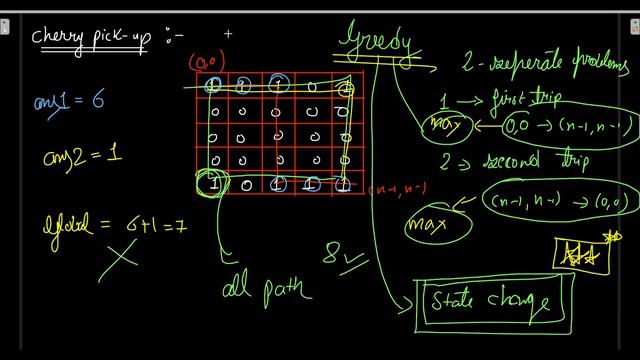 cherry pick-up :-
Greedy
(0,0)
2 - seperate problems
1 → first trip
max ← 0,0 → (n-1, n-1)
2 → second trip
(n-1, n-1) → (0,0)
max
ans1 = 6
ans2 = 1
Global = 6+1 = 7
1 1 1 0 1
0 0 0 0 0
0 0 0 0 0
0 0 0 0 0
1 0 1 1 1
(n-1, n-1)
8 ✓
all path
State change